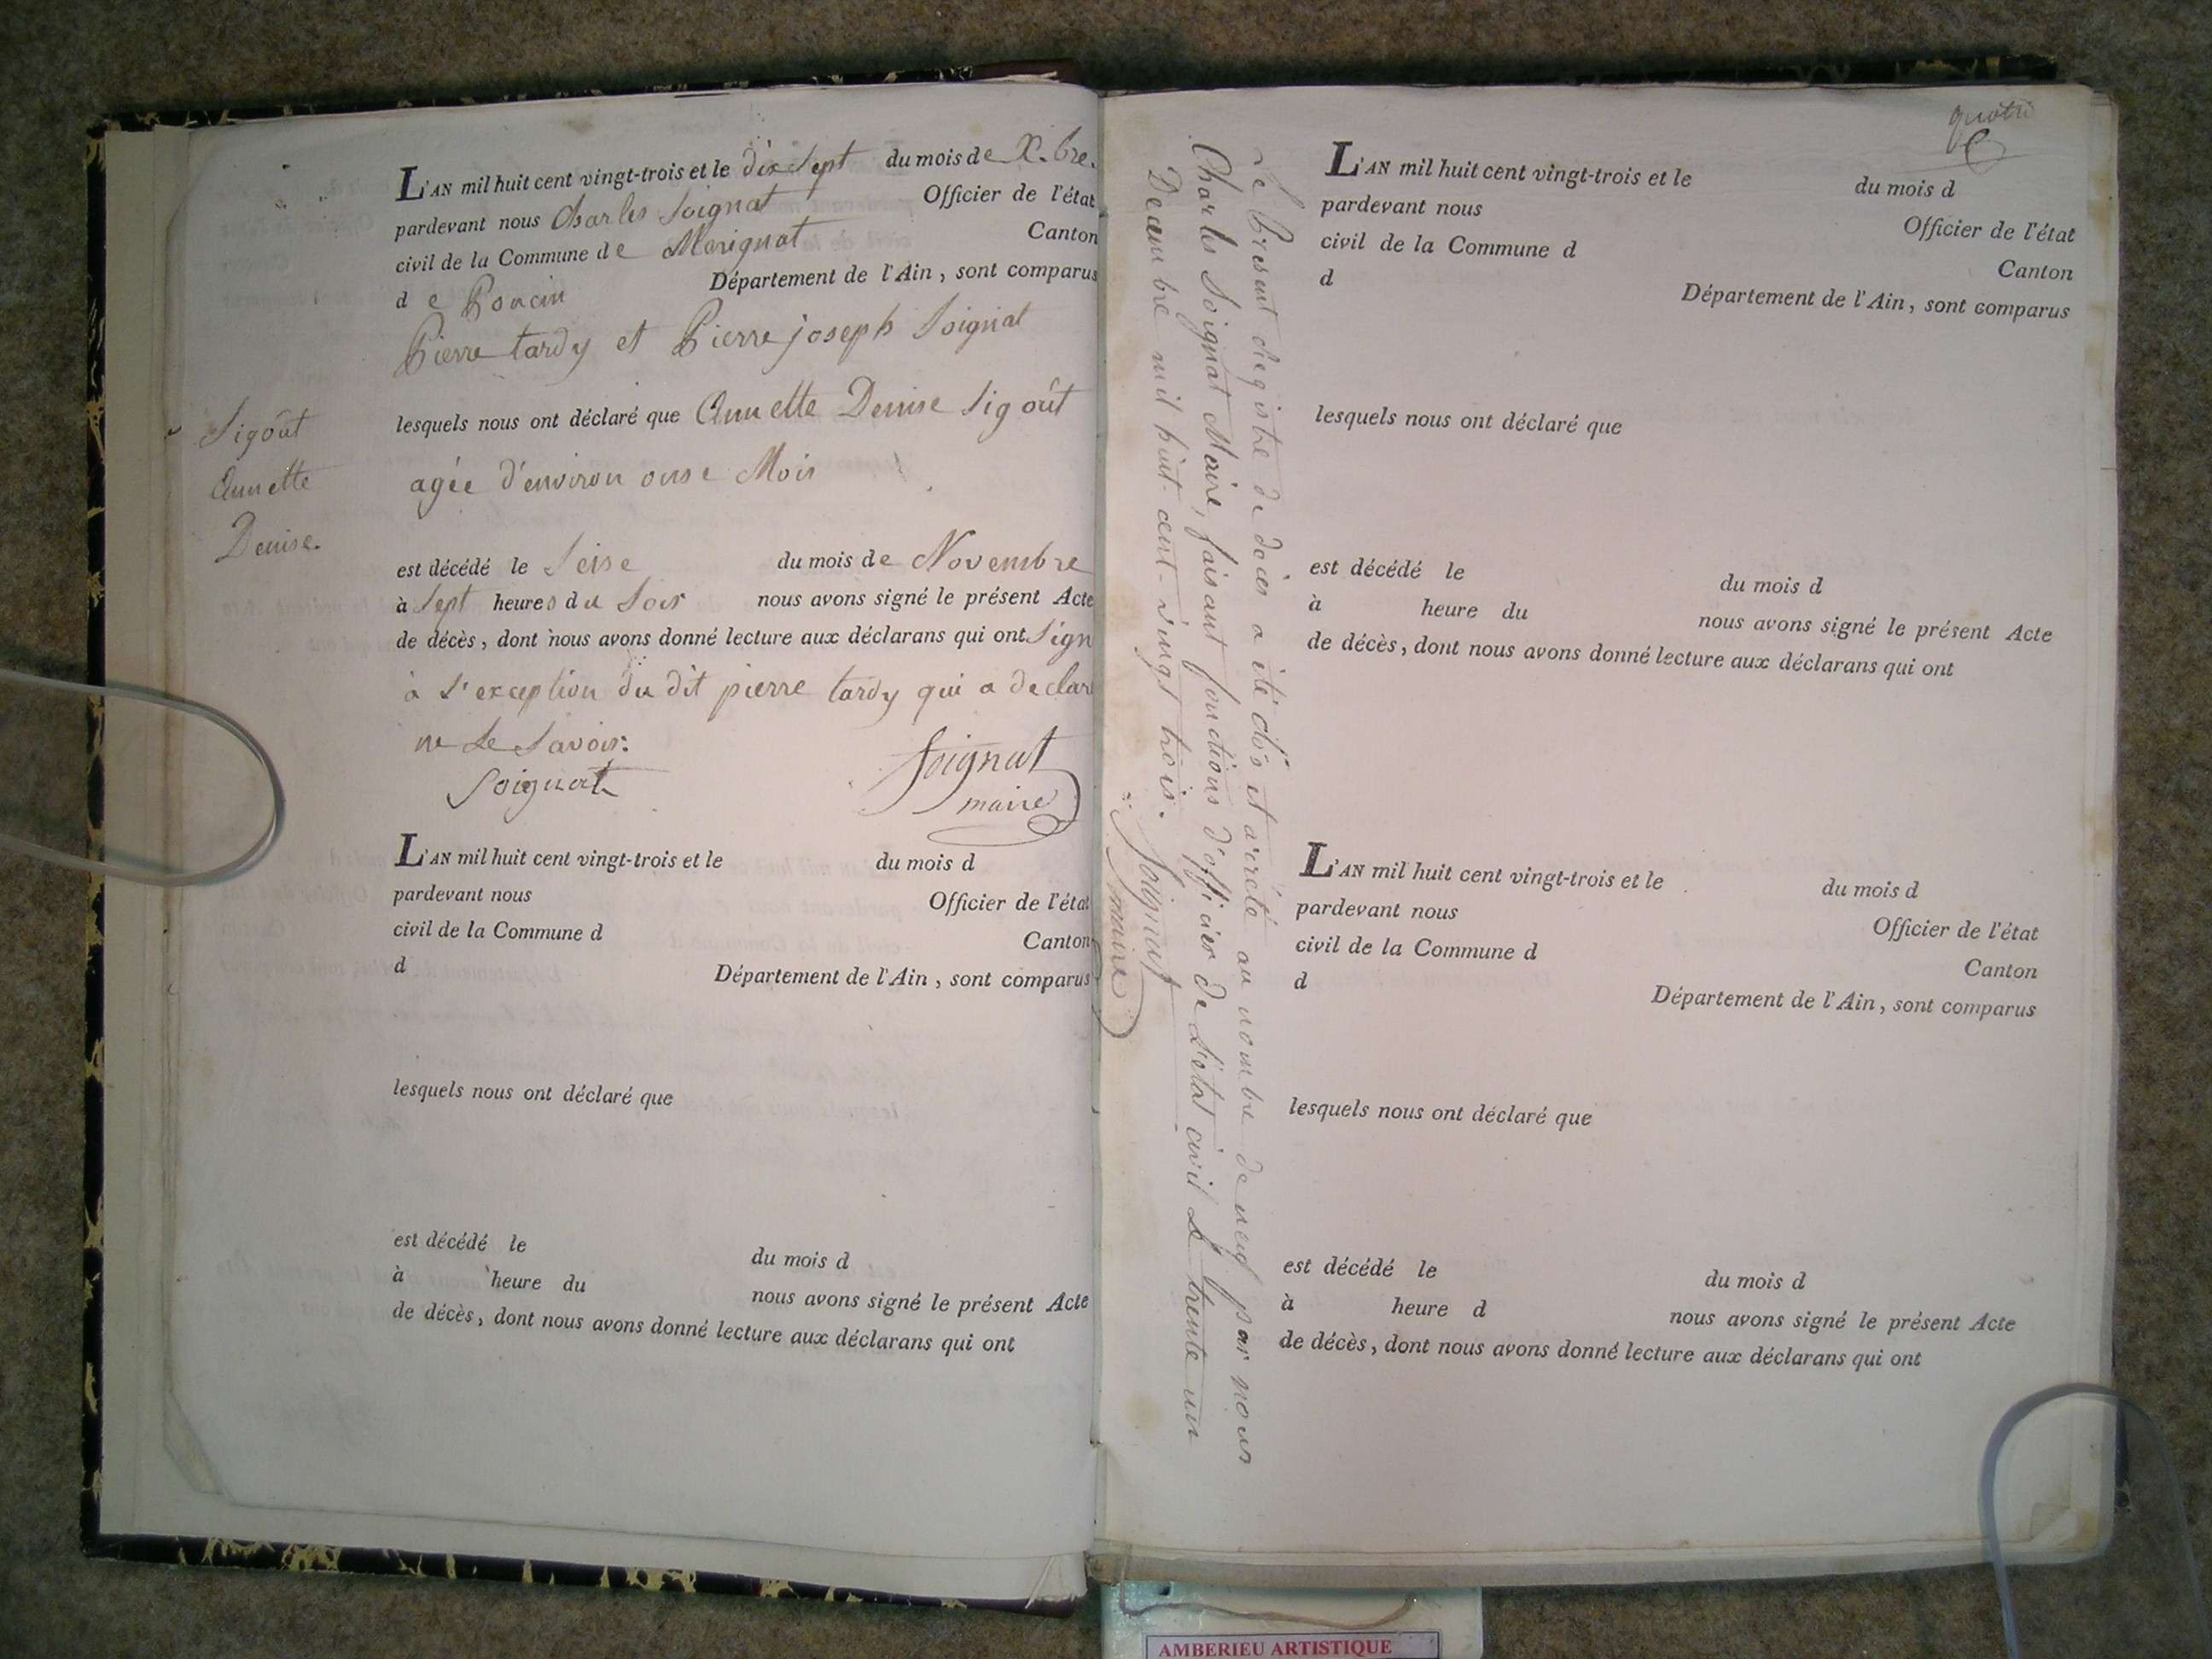 L'AN mil huit cent vingt-trois et le dix Sept du mois de X.bre.
pardevant nous Charles Soignat Officier de l'état
civil de la Commune de Merignat Canton
de Poncin Département de l'Ain, sont comparus
Pierre tardy et Pierre joseph Soignat
lesquels nous ont déclaré que Annette Denise Sigoût
Sigoût
agée d'environ onse Mois
Annette
Denise.
est décédé le Seise du mois de Novembre
à Sept heures du Soir nous avons signé le présent Acte
de décès, dont nous avons donné lecture aux déclarans qui ont Sign
à L'exception du dit pierre tardy qui a declaré
ne Le Savoir.
Soignat
Soignat
maire
L'AN mil huit cent vingt-trois et le du mois d
pardevant nous Officier de l'état
civil de la Commune d Canton
d Département de l'Ain, sont comparus
lesquels nous ont déclaré que
est décédé le du mois d
à heure du nous avons signé le présent Acte
de décès, dont nous avons donné lecture aux déclarans qui ont
Le Present Registre de décès a été clos et arrêté au nombre de neuf par nous
Charles Soignat Maire, faisant fonctions d'officier de L'état civil Le trente un
Decembre mil huit cent-vingt trois.
Soignat
maire
quatre
L'AN mil huit cent vingt-trois et le du mois d
pardevant nous Officier de l'état
civil de la Commune d Canton
d Département de l'Ain, sont comparus
lesquels nous ont déclaré que
est décédé le du mois d
à heure du nous avons signé le présent Acte
de décès, dont nous avons donné lecture aux déclarans qui ont
L'AN mil huit cent vingt-trois et le du mois d
pardevant nous Officier de l'état
civil de la Commune d Canton
d Département de l'Ain, sont comparus
lesquels nous ont déclaré que
est décédé le du mois d
à heure d nous avons signé le présent Acte
de décès, dont nous avons donné lecture aux déclarans qui ont
AMBERIEU ARTISTIQUE